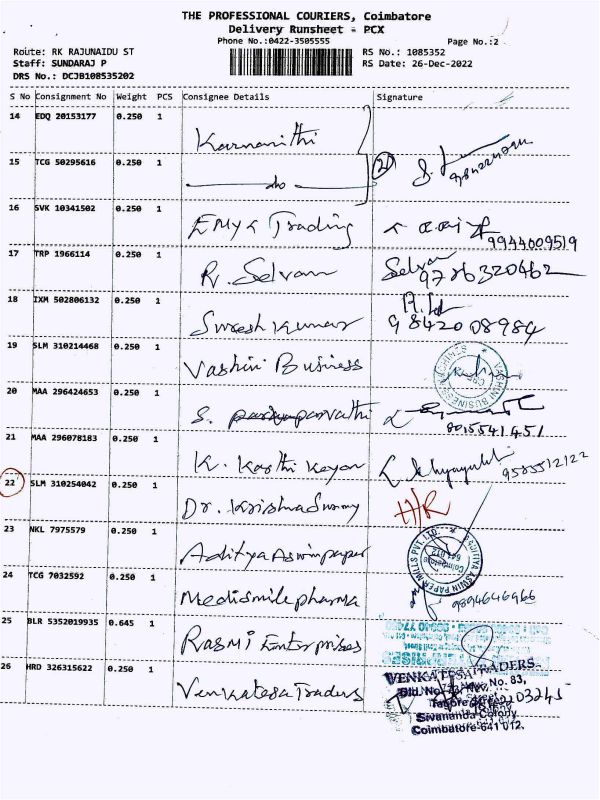 THE PROFESSIONAL COURIERS, Coimbatore
Delivery Runsheet - PCX
Phone No.:0422-3505555
Page No.:2
Route: RK RAJUNAIDU ST
RS No.: 1085352
Staff: SUNDARAJ P
RS Date: 26-Dec-2022
DRS No.: DCJB108535202
S No Consignment No Weight PCS Consignee Details Signature
14 EDQ 20153177 0.250 1
Karunanithi
15 TCG 50295616 0.250 1
do
2
16 SVK 10341502 0.250 1
EMYK Trading
9944009519
17 TRP 1966114 0.250 1
R. Selvam Selvam
9786320462
18 IXM 502806132 0.250 1
Suresh Kumar 9842008984
19 SLM 310214468 0.250 1
Vashini Business
VASHINI BUSINESS
20 MAA 296424653 0.250 1
S. parvathi
8015541451
21 MAA 296078183 0.250 1
K. Karthi Keyan
9585512122
22 SLM 310254042 0.250 1
Dr. Krishna Swamy H/R
23 NKL 7975579 0.250 1
Aditya Aswin paper
ADITYA ASWIN PAPER MILLS PVT. LTD.
Coimbatore
641 012
24 TCG 7032592 0.250 1
Medismile pharma 9894646966
25 BLR 5352019935 0.645 1
Rasmi Enterprises
26 HRD 326315622 0.250 1
Venkatesa Traders
VENKATESA TRADERS
No. 83,
Tagore
Sivananda Colony
Coimbatore-641 012.